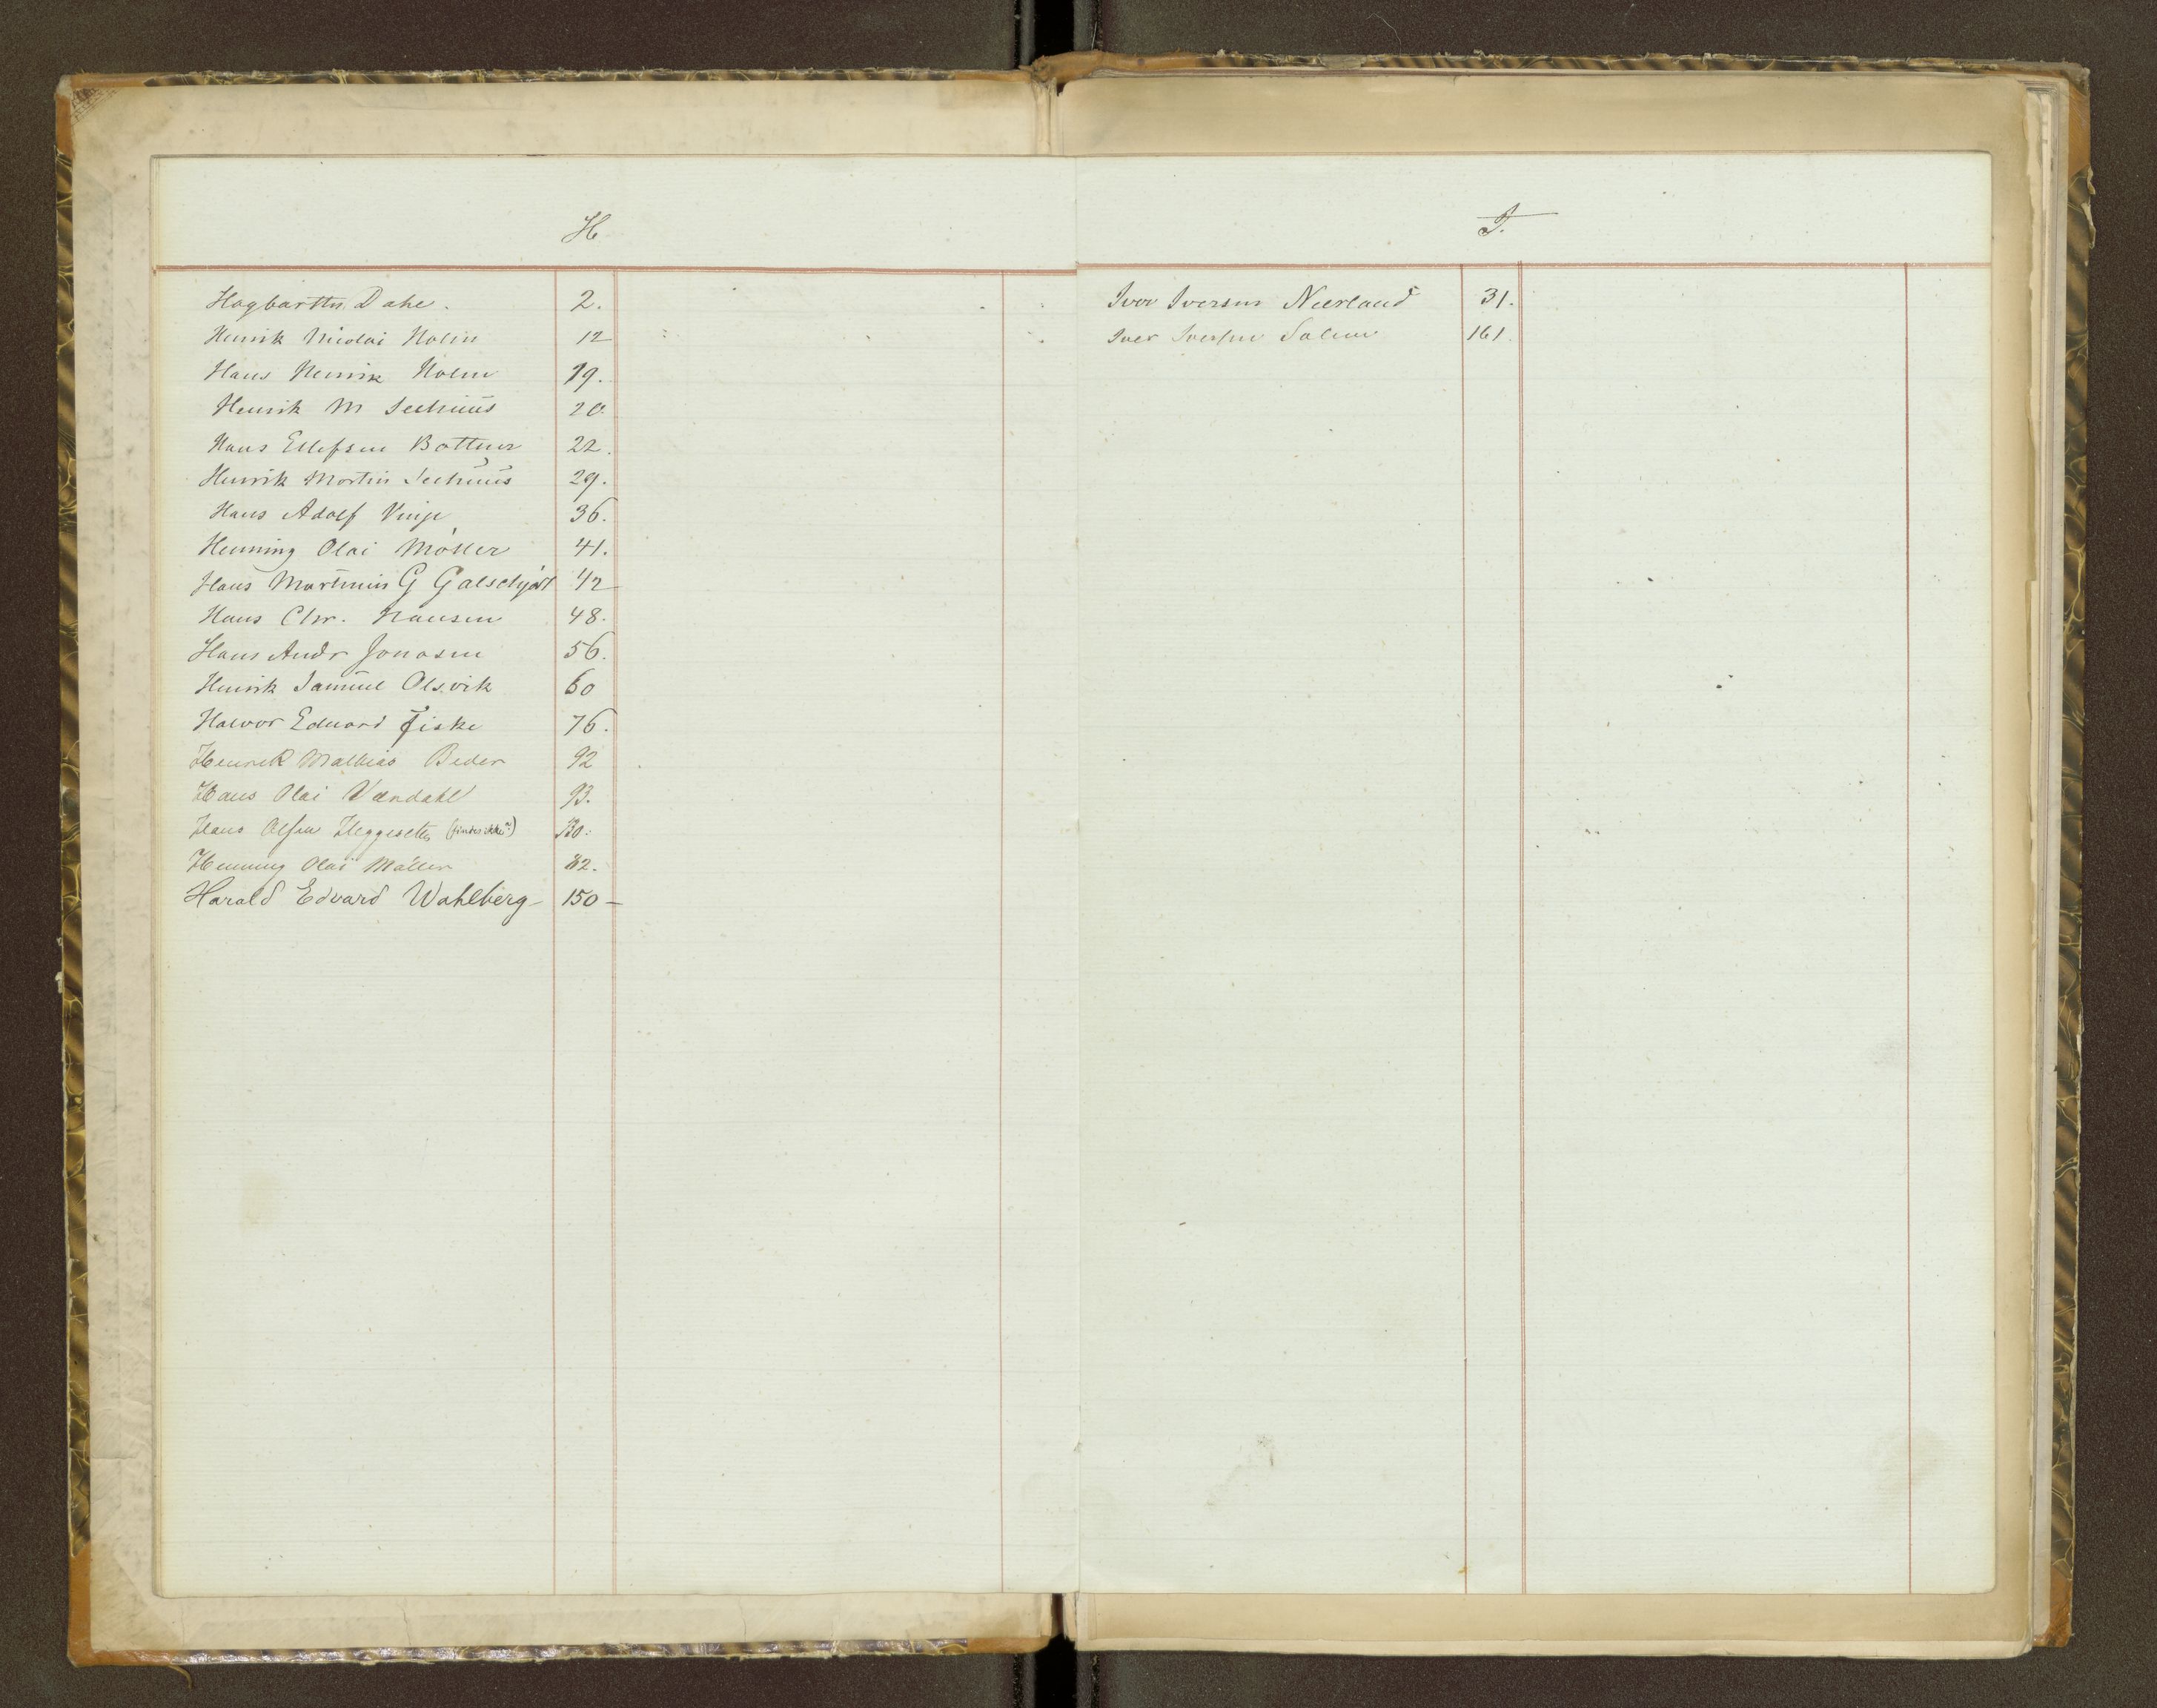 H
Hagbarth Dahl. 2.
Henrik Nicolai Holm 12
Hans Henrik Holm 19.
Henrik M Sechuus 20.
Hans Ellefsen Bottner 22.
Henrik Martin Sechuus 29.
Hans Adolf Vinje 36.
Henning Olai Möller 41.
Hans Martinius G Galschjødt 42
Hans Chr. Hansen 48.
Hans Andr Jonasen 56.
Henrik Samuel Olsvik 60
Halvor Eduard Fiske 76.
Henrik Mathias Beder 92
Hans Olai Vændahl 93.
Hans Olsen Heggesett (findes ikke?) 130.
Henning Olai Möller 82.
Harald Edvard Wahlberg 150
I.
Iver Iversen Neerland 31.
Iver Iversen Solem 161.